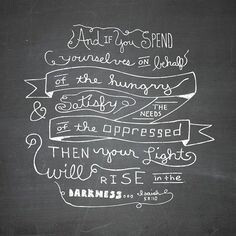 And if You SPEND
yourselves on behalf
of the hungry
& Satisfy THE NEEDS
of the oppressed
THEN your Light
will RISE in the
DARKNESS... Isaiah
58:10